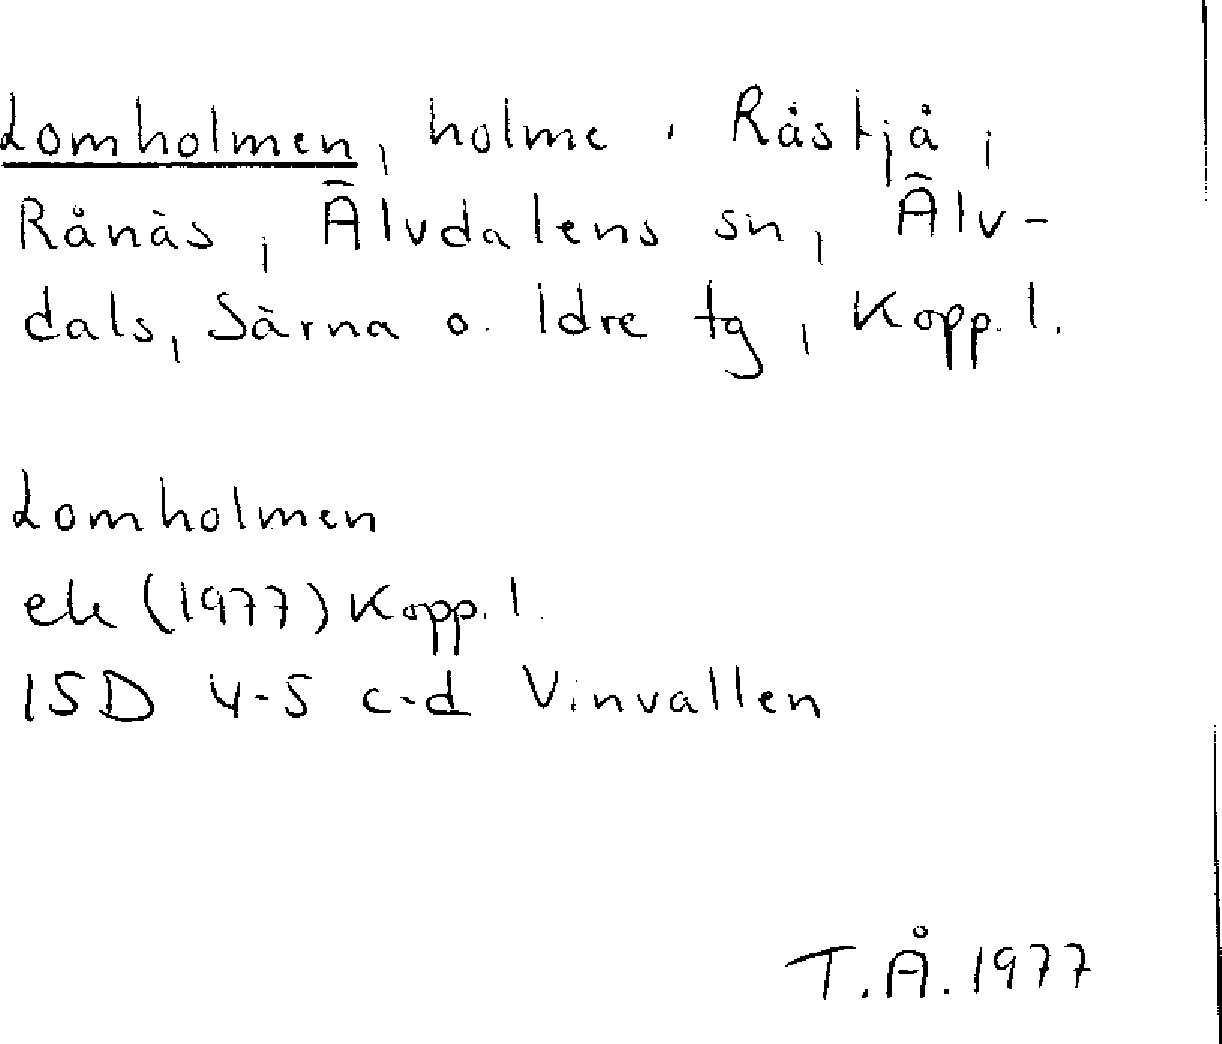 Lomholmen, holme i Råstjå,
Rånäs, Älvdalens sn, Älv-
dals, Särna o. Idre tg, Kopp. l.
Lomholmen
ek (1977) Kopp. l.
15D 4-5 c-d Vinvallen
T.Å. 1977